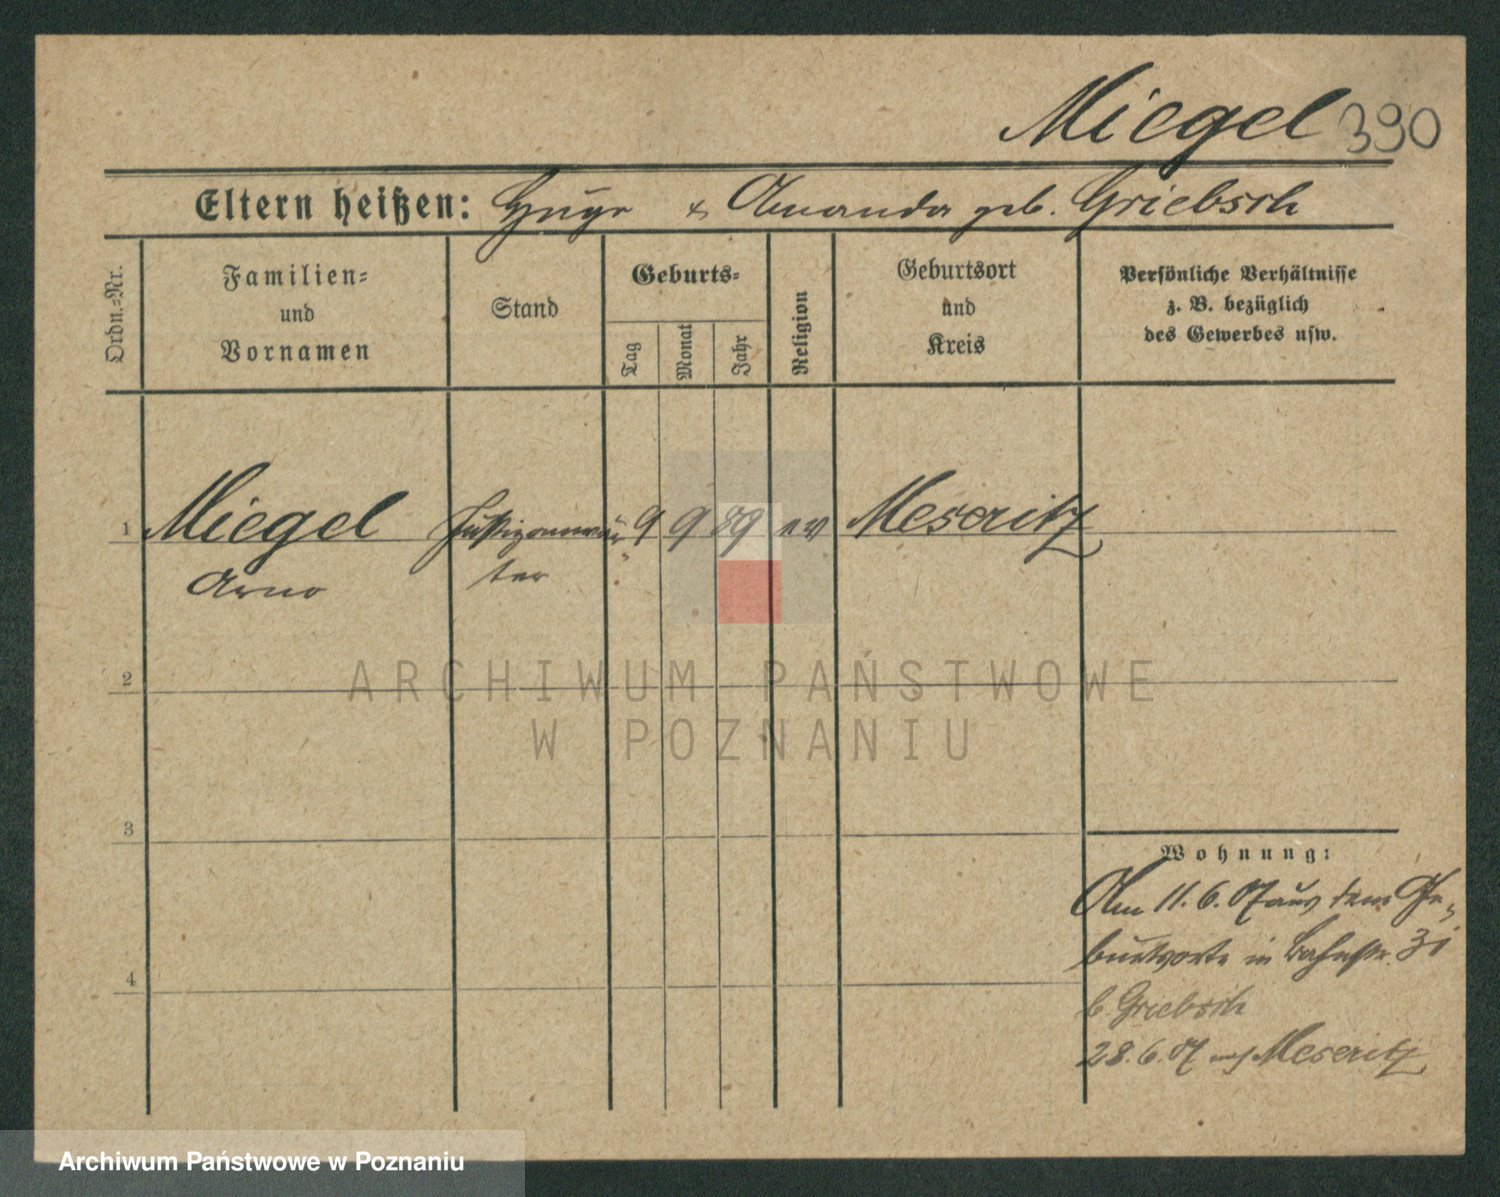 Miegel 390
Eltern heißen: Hugo & Amanda geb. Griebsch
Ordn.-Nr.
Familien-
und
Vornamen
Stand
Geburts-
Tag
Monat
Jahr
Religion
Geburtsort
und
Kreis
Persönliche Verhältnisse
z. B. bezüglich
des Gewerbes usw.
1 Miegel Justizanwär- 9 9 89 ev Meseritz
Arno ter
2
ARCHIWUM PAŃSTWOWE
W POZNANIU
3
Wohnung:
Am 11. 6. 07 aus dem Ge-
burtsorte in Bahnstr. 31
4
b. Griebsch
28. 6. 07 nach Meseritz
Archiwum Państwowe w Poznaniu